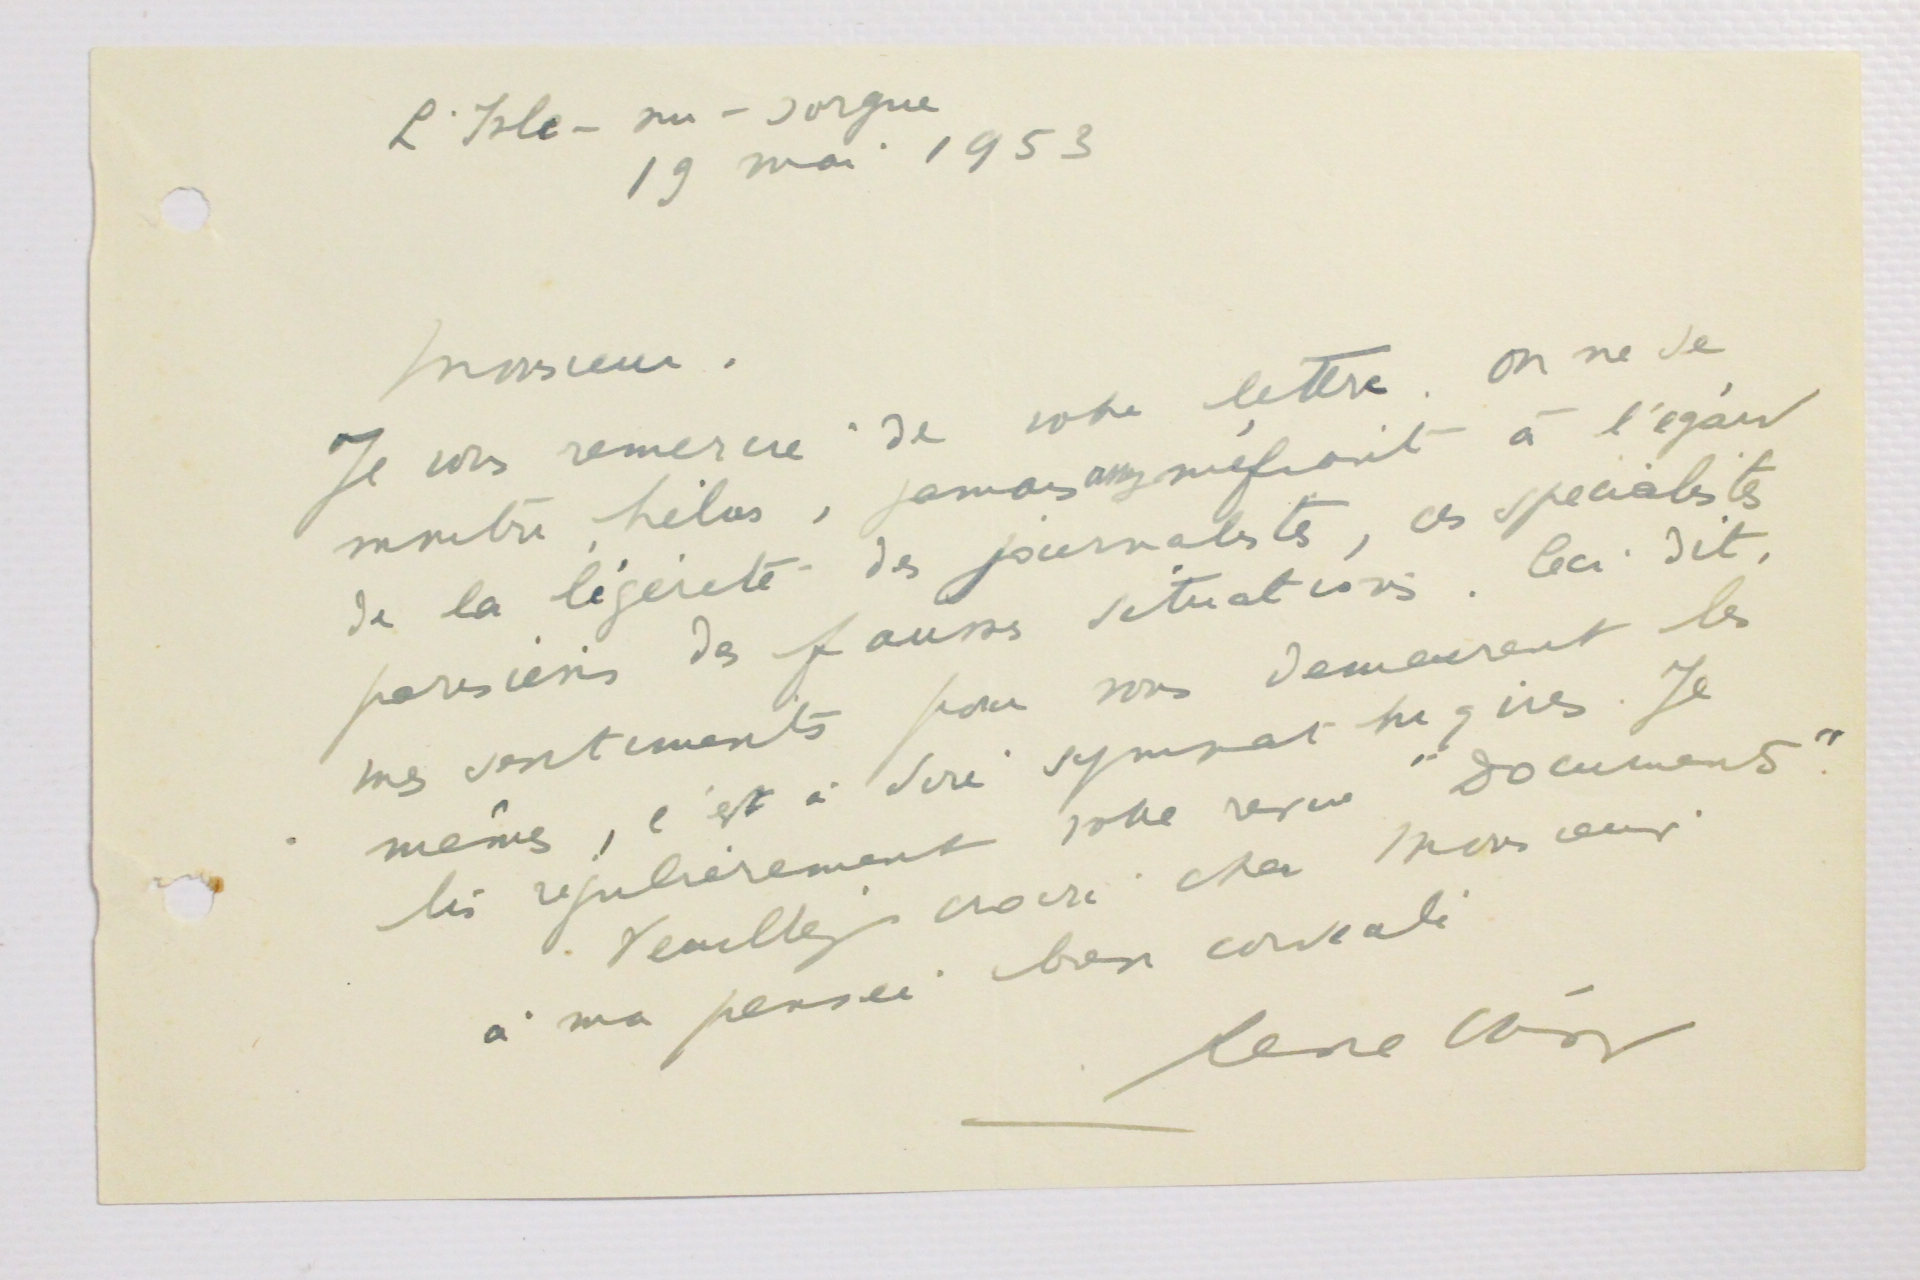 L'Isle-sur-Sorgue
19 mai 1953
Monsieur.
Je vous remercie de votre lettre. On ne se
montre, hélas, jamais assez méfiant à l'égard
de la légèreté des journalistes, ces spécialistes
parisiens des fausses situations. Ceci dit,
mes sentiments pour vous demeurent les
mêmes, c'est à dire sympathiques. Je
lis régulièrement votre revue "Documents".
Veuillez croire cher Monsieur
à ma pensée bien cordiale
René Char